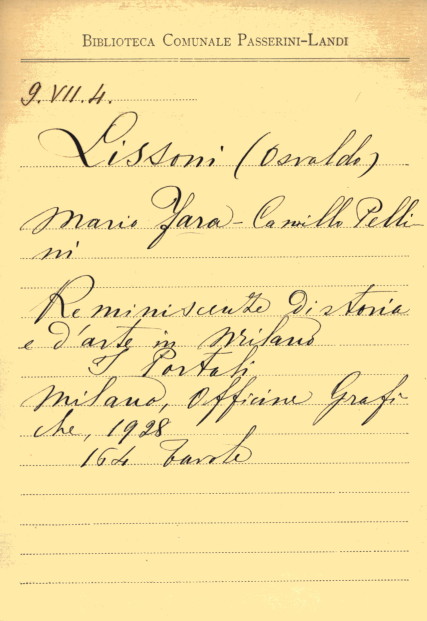 BIBLIOTECA COMUNALE PASSERINI-LANDI
9.VII.4.
Lissoni (Osvaldo)
Mario Fara - Camillo Pelli-
ni
Reminiscenze di storia
e d'arte in Milano
I Portali
Milano, Officine Grafi-
che, 1928
164 tavole